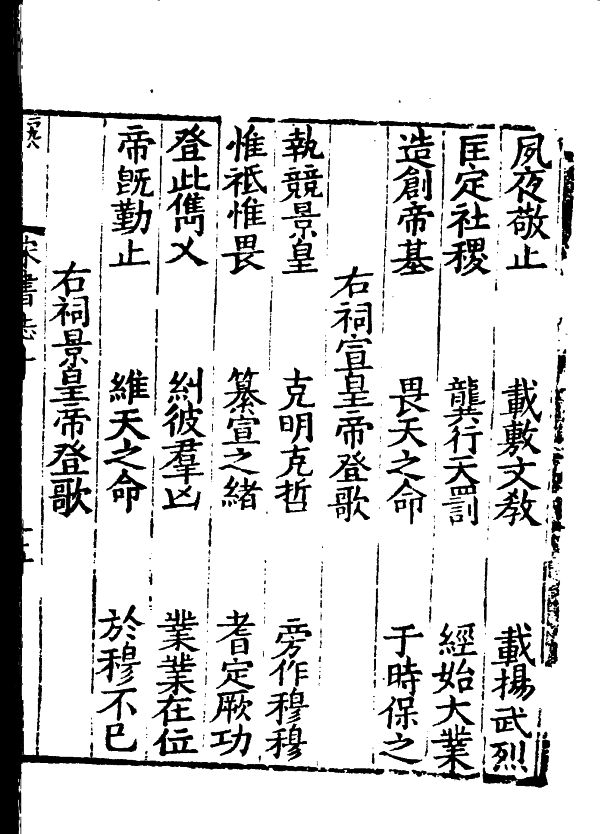 夙夜敬止　載敷文教　載揚武烈
匡定社稷　龔行天罰　經始大業
造創帝基　畏天之命　于時保之
右祠宣皇帝登歌
執競景皇　克明克哲　旁作穆穆
惟祗惟畏　纂宣之緒　耆定厥功
登此儁乂　糾彼羣凶　業業在位
帝旣勤止　維天之命　於穆不已
右祠景皇帝登歌
宋書志十